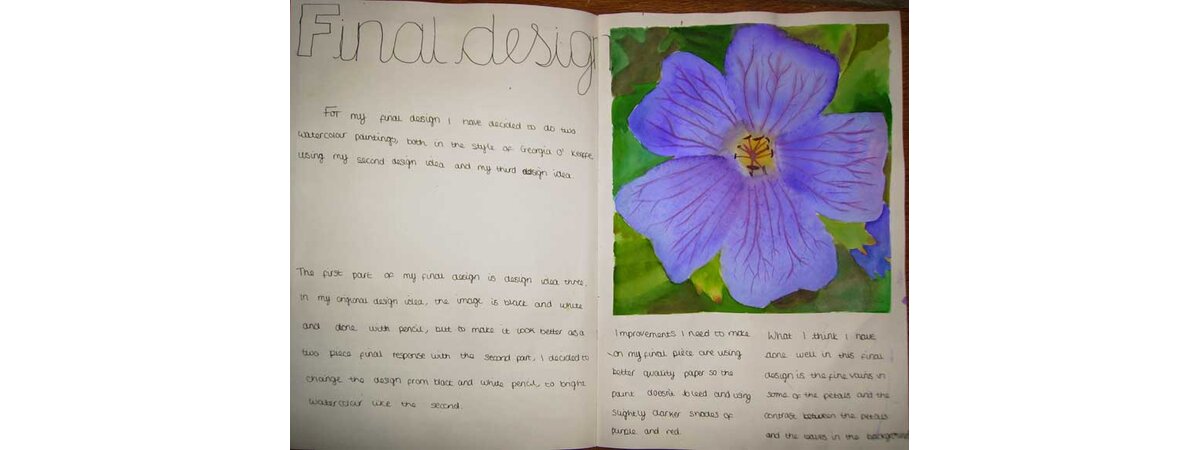 Final design
For my final design I have decided to do two
watercolour paintings, both in the style of Georgia O' Keeffe,
using my second design idea and my third design idea
The first part of my final design is design idea three.
In my original design idea, the image is black and white
and done with pencil, but to make it look better as a
two piece final response with the second part, I decided to
change the design from black and white pencil, to bright
watercolour like the second.
Improvements I need to make
on my final piece are using
better quality paper so the
paint doesn't bleed and using
slightly darker shades of
purple and red.
What I think I have
done well in this final
design is the fine vains in
some of the petals and the
contrast between the petals
and the leaves in the background